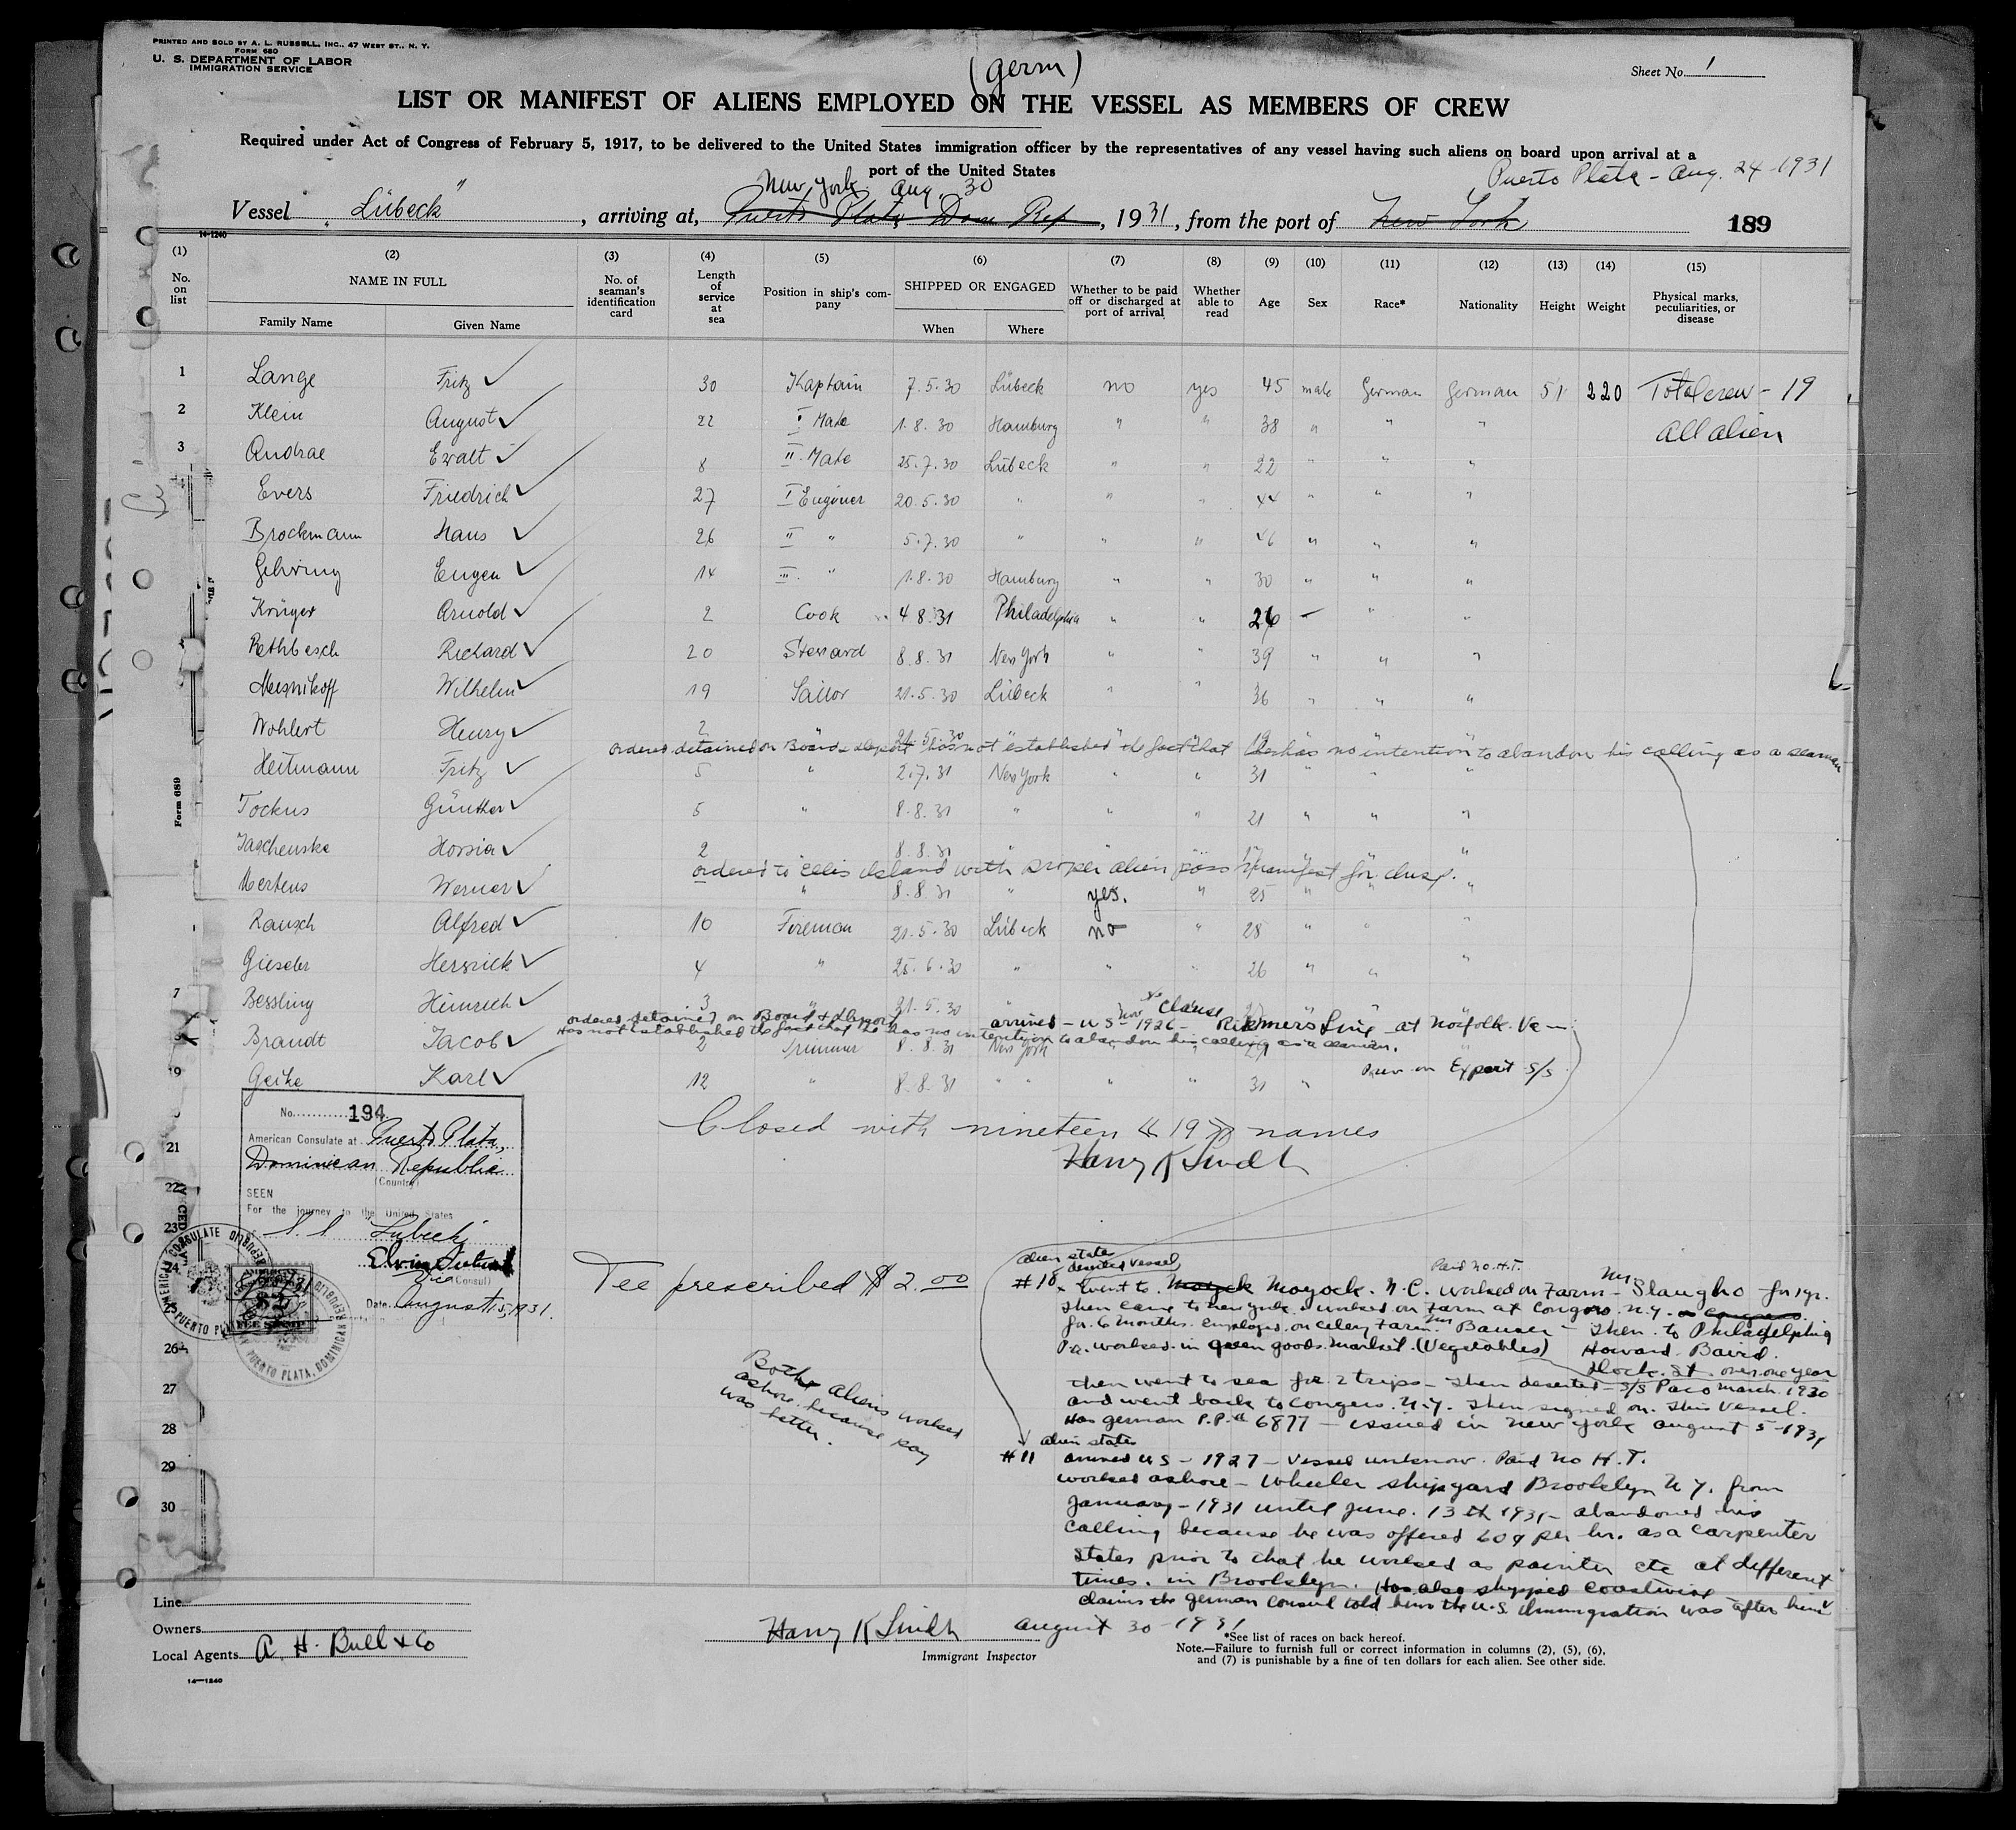 PRINTED AND SOLD BY A. L. RUSSELL, INC., 47 WEST ST., N. Y.
FORM 680
U. S. DEPARTMENT OF LABOR
IMMIGRATION SERVICE
(germ)
Sheet No. 1
LIST OR MANIFEST OF ALIENS EMPLOYED ON THE VESSEL AS MEMBERS OF CREW
Required under Act of Congress of February 5, 1917, to be delivered to the United States immigration officer by the representatives of any vessel having such aliens on board upon arrival at a
port of the United States
Puerto Plata - Aug. 24 - 1931
New York Aug. 30
Vessel "Lübeck", arriving at, Puerto Plata, Dom Rep, 1931, from the port of New York 189
14-1240
(1) (2) (3) (4) (5) (6) (7) (8) (9) (10) (11) (12) (13) (14) (15)
No. on list NAME IN FULL No. of seaman's identification card Length of service at sea Position in ship's company SHIPPED OR ENGAGED Whether to be paid off or discharged at port of arrival Whether able to read Age Sex Race* Nationality Height Weight Physical marks, peculiarities, or disease
Family Name Given Name When Where
1 Lange Fritz ✓ 30 Kaptain 7.5.30 Lübeck no yes 45 male German German 5 1 220 Total crew - 19
2 Klein August ✓ 22 I Mate 1.8.30 Hamburg " " 38 " " "
All alien
3 Andrae Ewalt ✓ 8 II. Mate 25.7.30 Lübeck " " 22 " " "
Evers Friedrich ✓ 27 I Enginer 20.5.30 " " " 44 " " "
Brockmann Hans ✓ 26 II " 5.7.30 " " " 46 " " "
Gehring Eugen ✓ 14 III. " 1.8.30 Hamburg " " 30 " " "
Krüger Arnold ✓ 2 Cook 4 8.31 Philadelphia " " 26 " "
Rethbesch Richard ✓ 20 Steward 8.8.31 New York " " 39 " " "
Wilhelm ✓ 19 Sailor 21.5.30 Lübeck " " 36 " " "
Wohlert Henry ✓ 2 " 21.5.30 " " " 19 " " "
ordered detained on Board & deport has not established the fact that he has no intention to abandon his calling as a seaman
Heitmann Fritz ✓ 5 " 2.7.31 New York " " 31 " " "
Tockus Günther ✓ 5 " 8.8.31 " " " 21 " " "
✓ 2 8.8.31 " " " 17 " " "
ordered to Ellis Island with proper alien pass & manifest for disch.
Mertens Werner ✓ " 8.8.31 " yes. " 25 " " "
Rausch Alfred ✓ 10 Fireman 21.5.30 Lübeck no " 28 " " "
Gieseler ✓ 4 " 25.6.30 " " " 26 " " "
7 Bessling Heinrich ✓ 3 " 21.5.30 "
ordered detained on Board & deport
Claims arrived - U S - Nov 1926 - Rickmers Line at Norfolk. Va -
Has not established the fact that he has no intention to abandon his calling as a seaman.
Brandt Jacob ✓ 2 Trimmer 8.8.31 New York
on Export S/S
19 Geike Karl ✓ 12 " 8.8.31 " " " " 31 "
Closed with nineteen "19" names
Harry K Lindh
No. 194
American Consulate at Puerto Plata,
Dominican Republic
(Country)
SEEN
For the journey to the United States
S.S. "Lubeck"
(Consul)
Date August 15, 1931.
AMERICAN CONSULATE PUERTO PLATA, DOMINICAN REPUBLIC
$2
FEE STAMP
Form 689
21
22
23
24
26
27
28
29
30
Fee prescribed $ 2.00
Both aliens worked
ashore because pay
was better.
alien states
deserted vessel
Paid no. H.T.
#10 went to Moyock Moyock. N.C. worked on Farm - Mr. Slaugho for 1 yr.
then came to new york & worked on Farm at Congers. N.Y.
for 6 months. employed on celery Farm. Mr Bauer - then to Philadelphia
Pa. worked in green goods market. (Vegetables) Howard Baird.
Dock. St. over one year
then went to sea for 2 trips - then deserted - S/S Paco March. 1930
and went back to Congers. N.Y. then signed on this Vessel.
Has german P.P. # 6877 - issued in New York August 5 - 1931
alien states
#11 arrived U S - 1927 - Vessel unknow. Paid no H.T.
worked ashore - Wheeler shipyard Brooklyn N Y. from
January - 1931 until June. 13th 1931 - abandoned his
calling because he was offered 60¢ per hr. as a carpenter
states prior to that he worked as painter etc at different
times. in Brooklyn. Has also shipped coastwise
claims the german consul told him the U.S. Immigration was after him
Line
Owners
Local Agents A. H. Bull & Co
14-1240
Harry K Lindh August 30 - 1931
Immigrant Inspector
*See list of races on back hereof.
Note.—Failure to furnish full or correct information in columns (2), (5), (6),
and (7) is punishable by a fine of ten dollars for each alien. See other side.